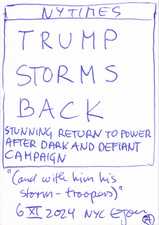 NYTIMES
TRUMP
STORMS
BACK
STUNNING RETURN TO POWER
AFTER DARK AND DEFIANT
CAMPAIGN
"(and with him his
storm-troopers)"
6 XI 2024 NYC